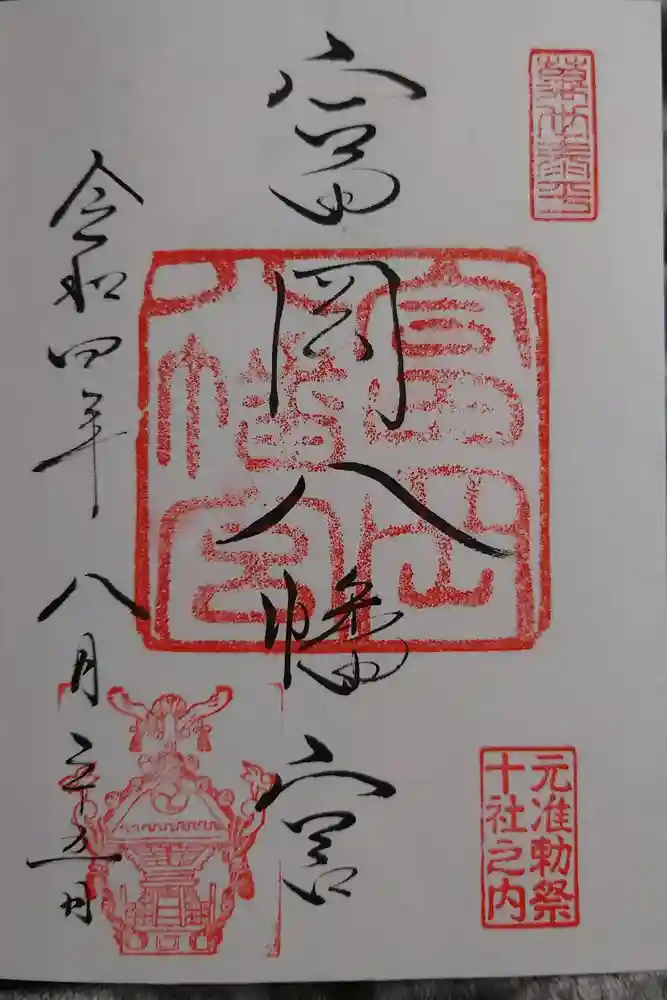 富岡八幡宮
富岡
八幡宮
元准勅祭
十社之内
令和四年 八月二十五日